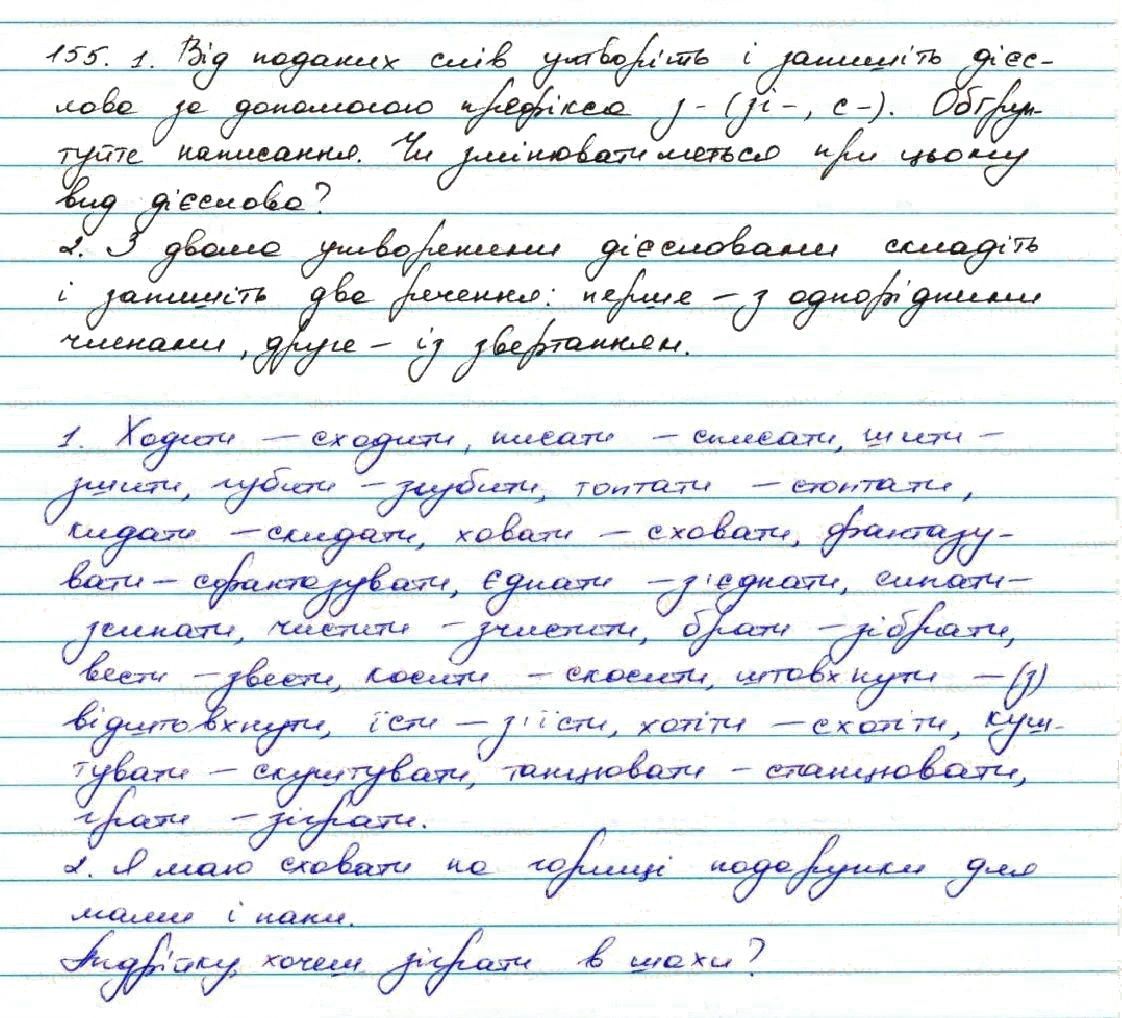 155. 1. Від поданих слів утворіть і запишіть дієс-
лова за допомогою префікса з- (зі-, с-). Обґрун-
туйте написання. Чи змінюватиметься при цьому
вид дієслова?
2. З двома утвореними дієсловами складіть
і запишіть два речення: перше – з однорідними
членами, друге – із звертанням.
1. Ходити – сходити, писати – списати, шити –
зшити, губити – згубити, топтати – стоптати,
кидати – скидати, ховати – сховати, фантазу-
вати – сфантазувати, єднати – з'єднати, сипати –
зсипати, чистити – зчистити, брати – зібрати,
вести – звести, косити – скосити, штовхнути – (з)
відштовхнути, їсти – з'їсти, хотіти – схотіти, куш-
тувати – скуштувати, танцювати – станцювати,
грати – зіграти.
2. Я маю сховати на горищі подарунки для
мами і папи.
Андрійку, хочеш зіграти в шахи?